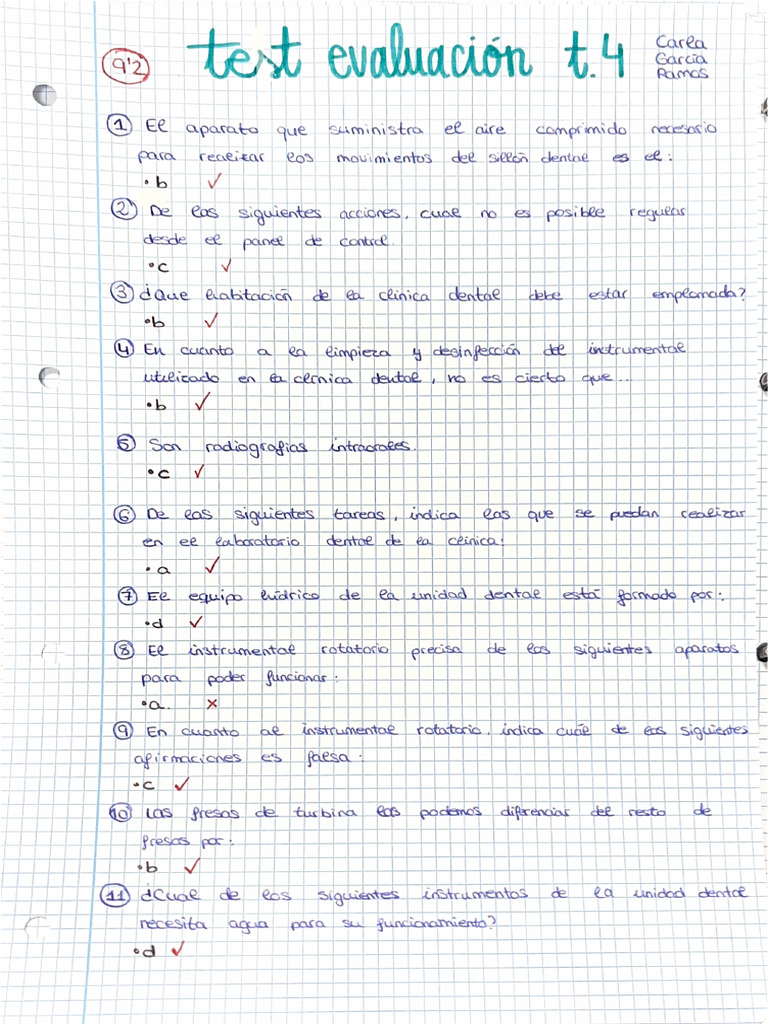 9'2
test evaluación t.4
Carla
García
Ramos
① El aparato que suministra el aire comprimido necesario
para realizar los movimientos del sillón dental es el:
• b ✓
② De las siguientes acciones, cual no es posible regular
desde el panel de control.
• c ✓
③ ¿Que habitación de la clinica dental debe estar emplomada?
• b ✓
④ En cuanto a la limpieza y desinfección del instrumental
utilizado en la clínica dental, no es cierto que...
• b ✓
⑤ Son radiografias intraorales.
• c ✓
⑥ De las siguientes tareas, indica las que se puedan realizar
en el laboratorio dental de la clinica:
• a ✓
⑦ El equipo hídrico de la unidad dental está formado por:
• d ✓
⑧ El instrumental rotatorio precisa de los siguientes aparatos
para poder funcionar:
• a. ✗
⑨ En cuanto al instrumental rotatorio, indica cuál de las siguientes
afirmaciones es falsa:
• c ✓
⑩ Las fresas de turbina las podemos difrenciar del resto de
fresas por:
• b ✓
⑪ ¿Cual de los siguientes instrumentos de la unidad dental
necesita agua para su funcionamiento?
• d ✓